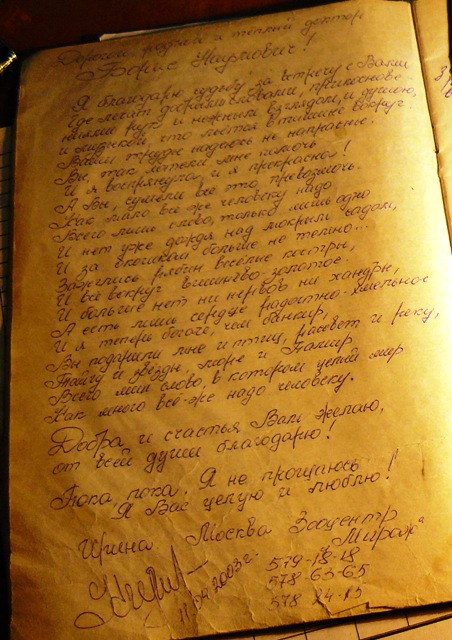 Дорогой, родной и тёплый доктор
Борис Наумович!
Я благодарю судьбу за встречу с Вами
Где лечат добрыми словами, прикоснове-
ниями рук и нежным взглядом, и душою,
и музыкой, что льётся в тишине вокруг.
Ваши труды надеюсь не напрасны!
Вы, так мне помочь
И я воспрянула, и я прекрасна!
А Вы, сумели всё это превозмочь.
Как мало всё же человеку надо
Всего лишь слово, только лишь одно
И нет уже дождя над мокрым садом,
И за окошком больше не темно...
Зажглись рябин весёлые костры,
И всё вокруг вишнёво-золотое
И больше нет ни нервов ни хандры,
А есть лишь сердце радостно-хмельное
И я теперь богаче, чем банкир,
Вы подарили мне и птиц, рассвет и реку,
Тайгу и звёзды, море и Памир
Всего лишь слово, в котором целый мир
Как много всё-же надо человеку.
Добра и счастья Вам желаю,
от всей души благодарю!
Пока, пока. Я не прощаюсь
Я Вас целую и люблю!
Ирина Москва Зооцентр
"Мираж"
2003 г.
579-18-18
578-63-65
578